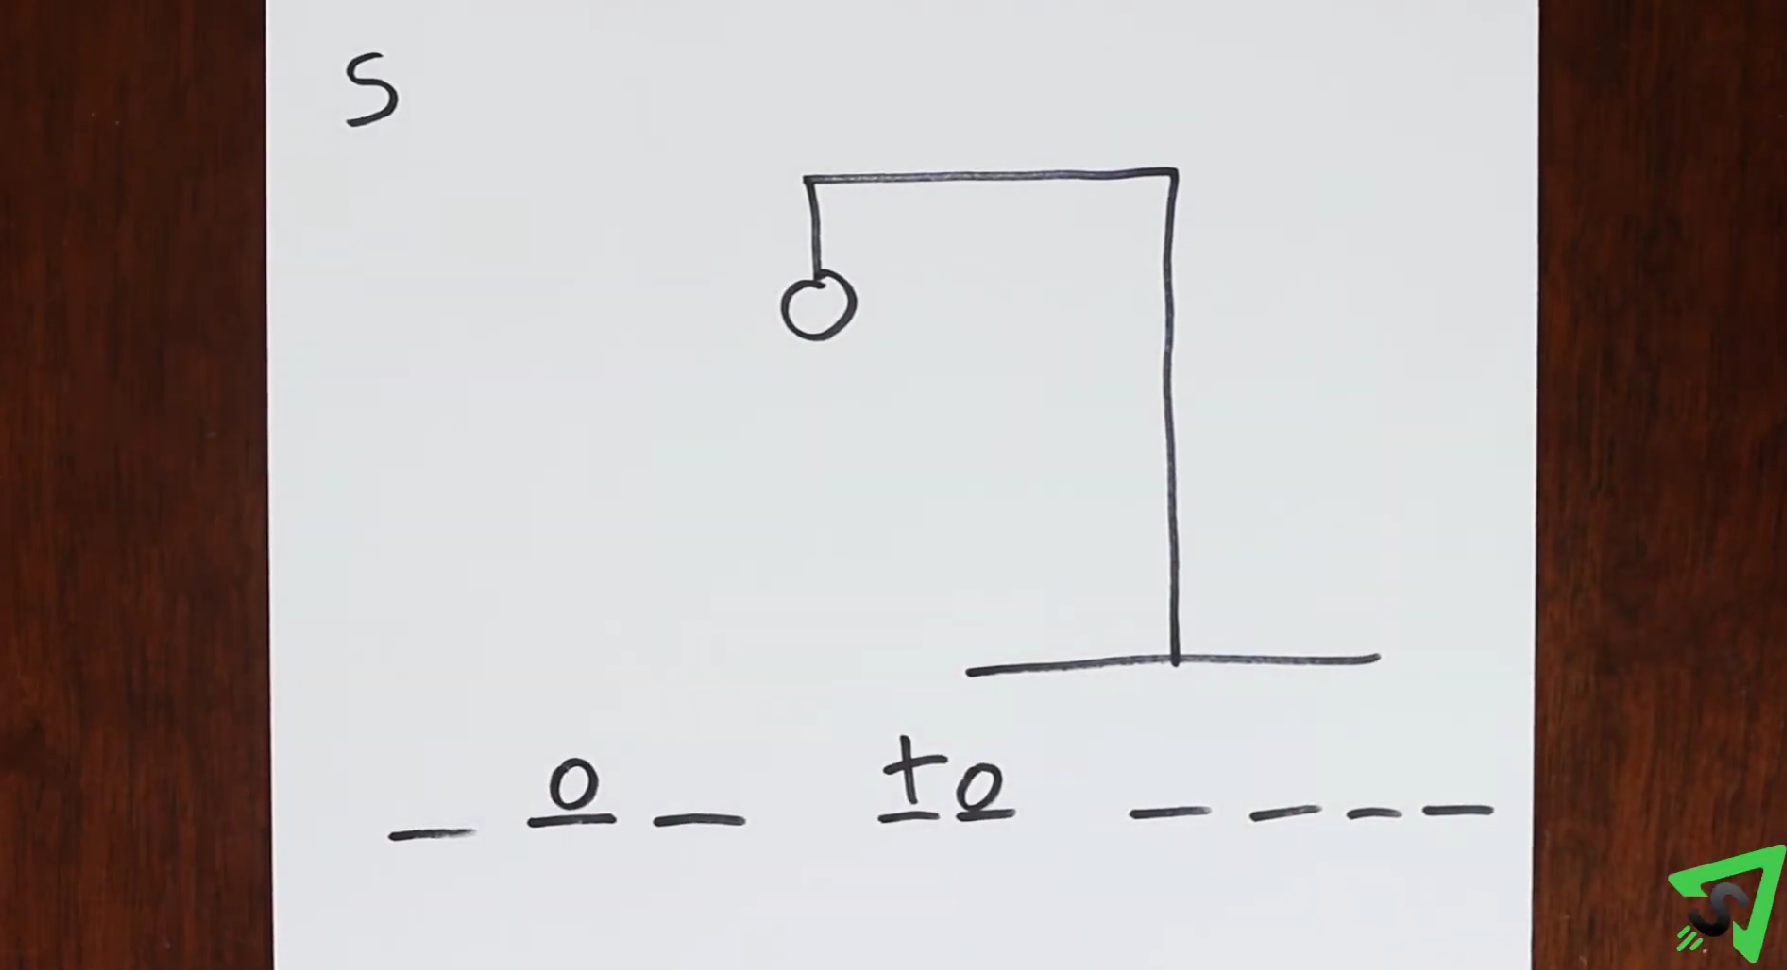 S
_ o _ to _ _ _ _